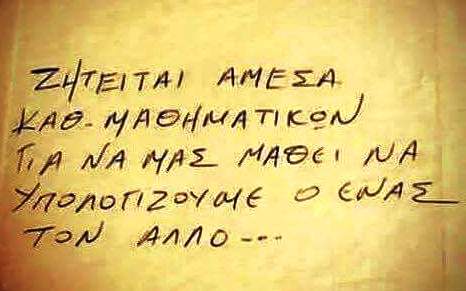 ΖΗΤΕΙΤΑΙ ΑΜΕΣΑ
ΚΑΘ-ΜΑΘΗΜΑΤΙΚΩΝ
ΓΙΑ ΝΑ ΜΑΣ ΜΑΘΕΙ ΝΑ
ΥΠΟΛΟΓΙΖΟΥΜΕ Ο ΕΝΑΣ
ΤΟΝ ΑΛΛΟ---